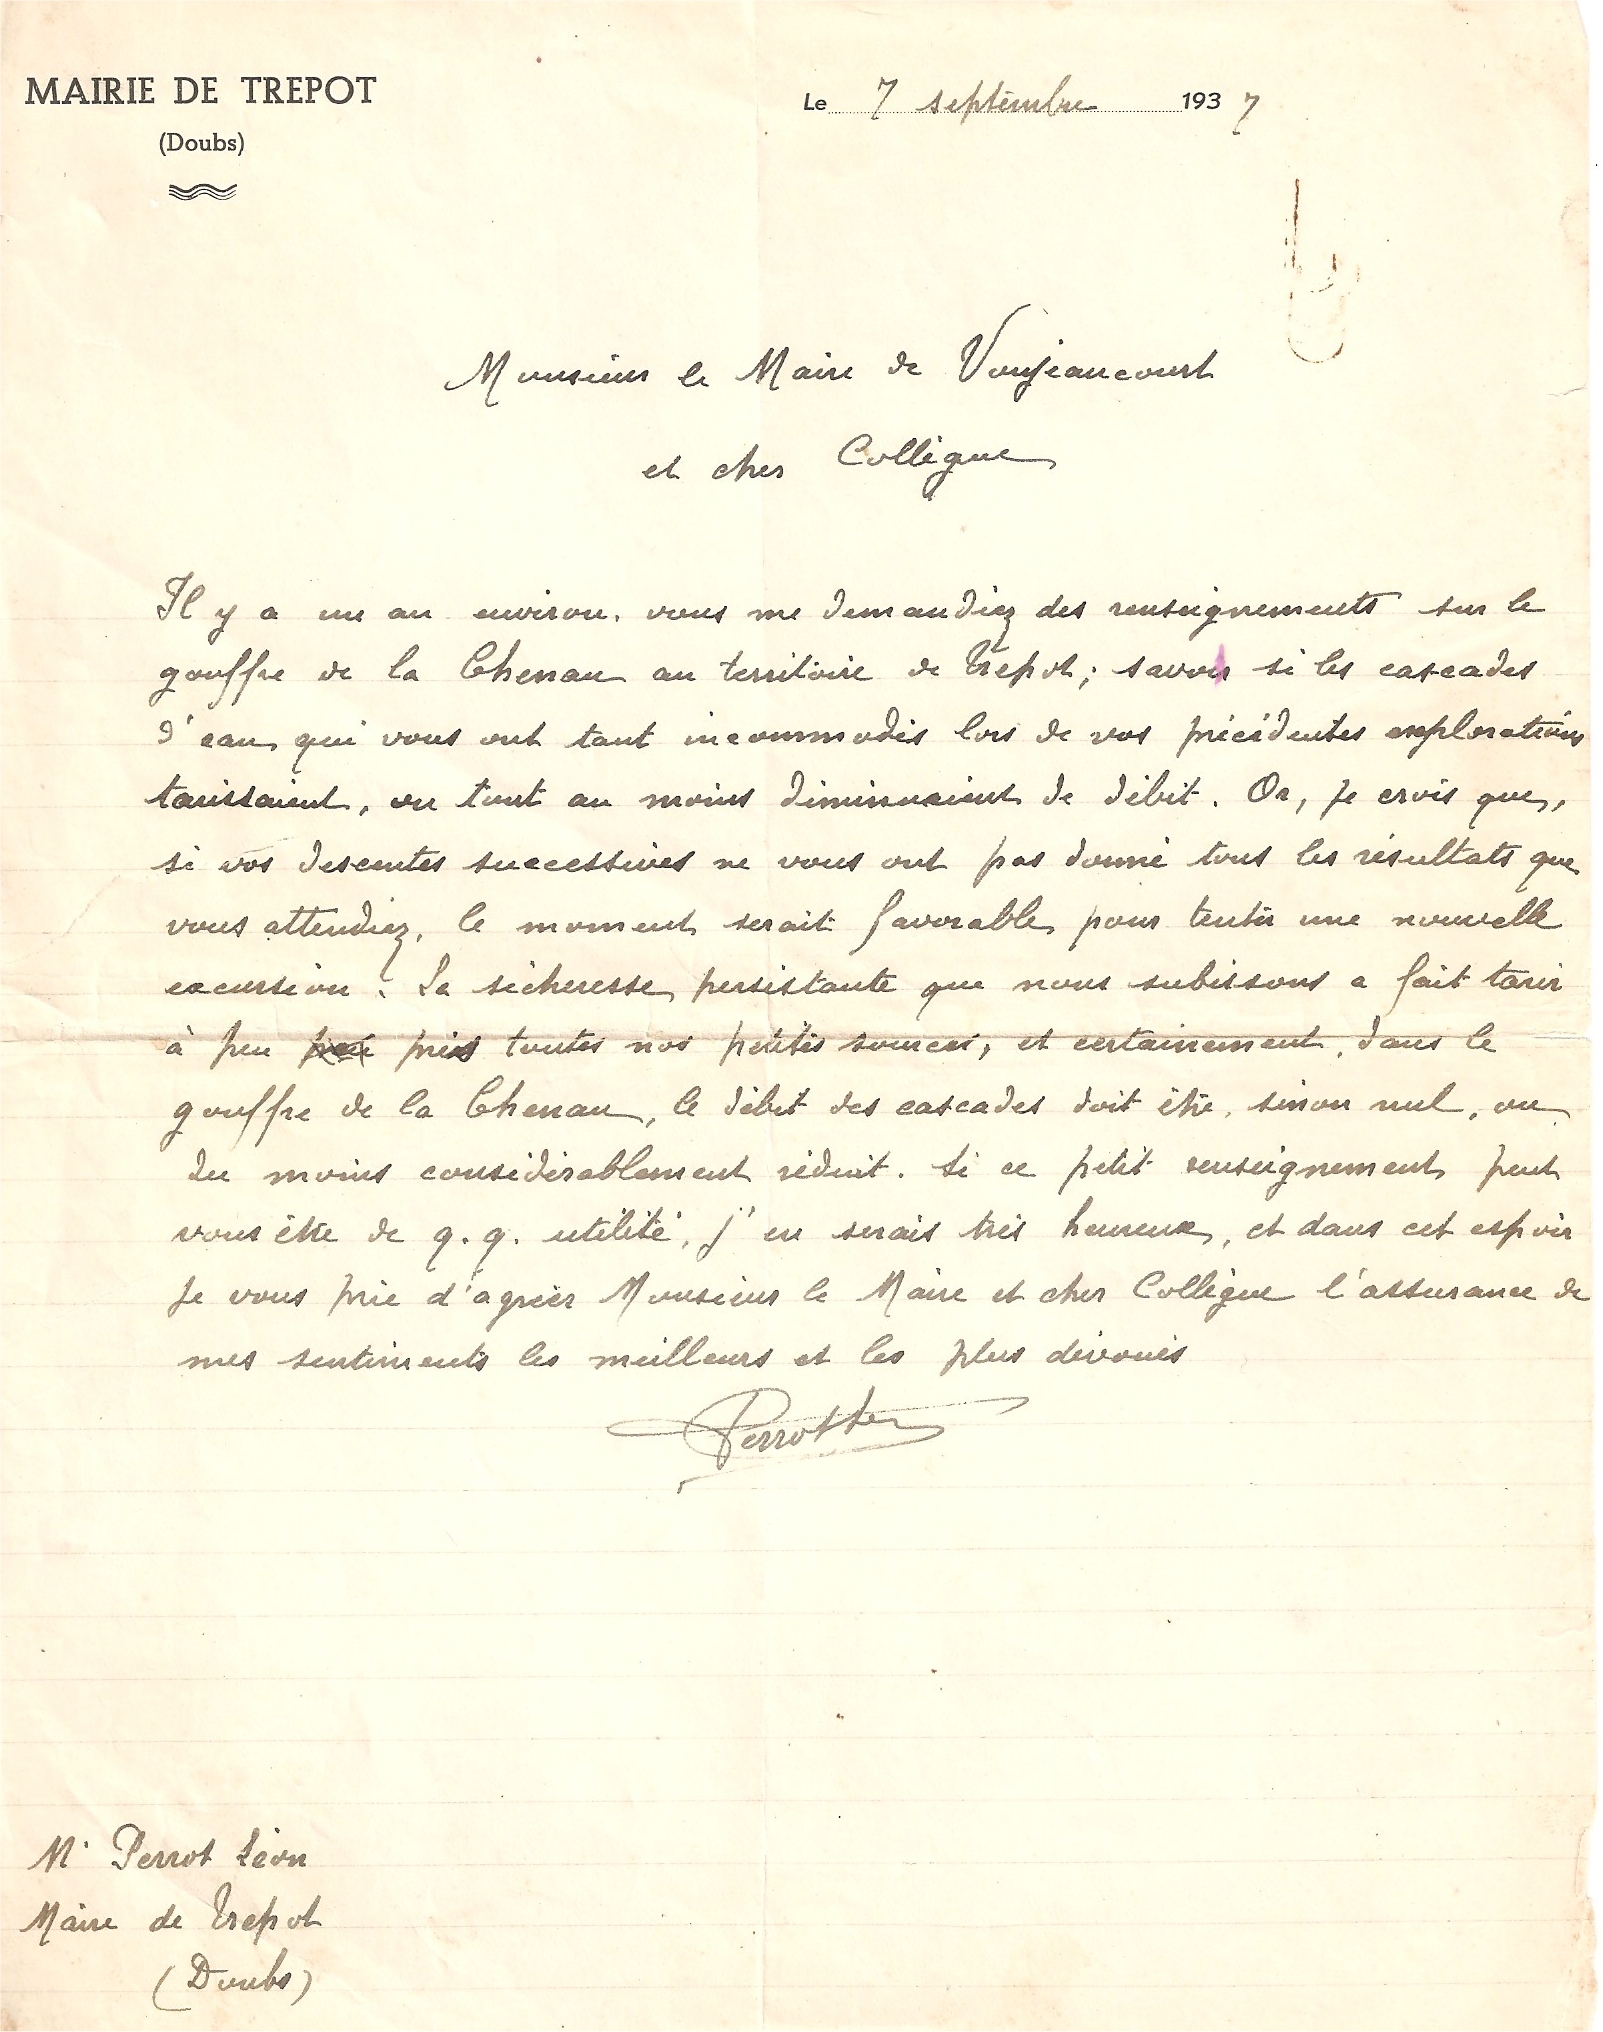 MAIRIE DE TREPOT
(Doubs)
Le 7 septembre 1937
Monsieur le Maire de Voujeaucourt
et cher Collègue
Il y a un an environ, vous me demandiez des renseignements sur le
gouffre de la Chenau au territoire de Trepot ; savoir si les cascades
d'eau qui vous ont tant incommodés lors de vos précédentes explorations
tarissaient, ou tout au moins diminuaient de débit. Or, je crois que,
si vos descentes successives ne vous ont pas donné tous les résultats que
vous attendiez, le moment serait favorable pour tenter une nouvelle
excursion. La sécheresse persistante que nous subissons a fait tarir
à peu près toutes nos petites sources, et certainement, dans le
gouffre de la Chenau, le débit des cascades doit être, sinon nul, ou
du moins considérablement réduit. Si ce petit renseignement peut
vous être de q.q. utilité, j'en serais très heureux, et dans cet espoir
je vous prie d'agréer Monsieur le Maire et cher Collègue l'assurance de
mes sentiments les meilleurs et les plus dévoués
Mr Perrot Léon
Maire de Trepot
(Doubs)